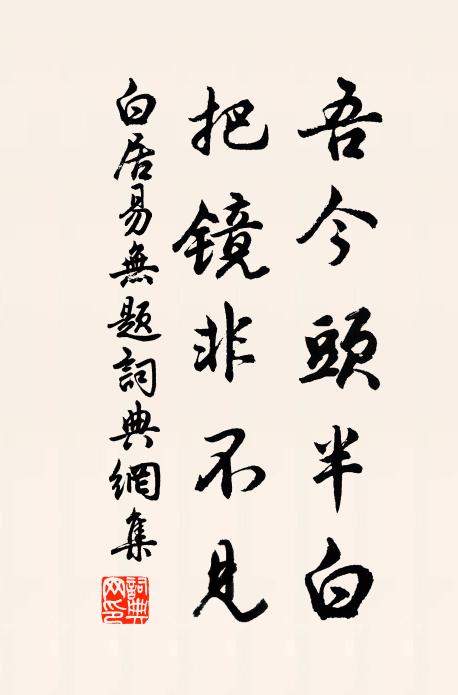 吾今頭半白
把镜非不見
白居易無题詞典網集
詞典
网印